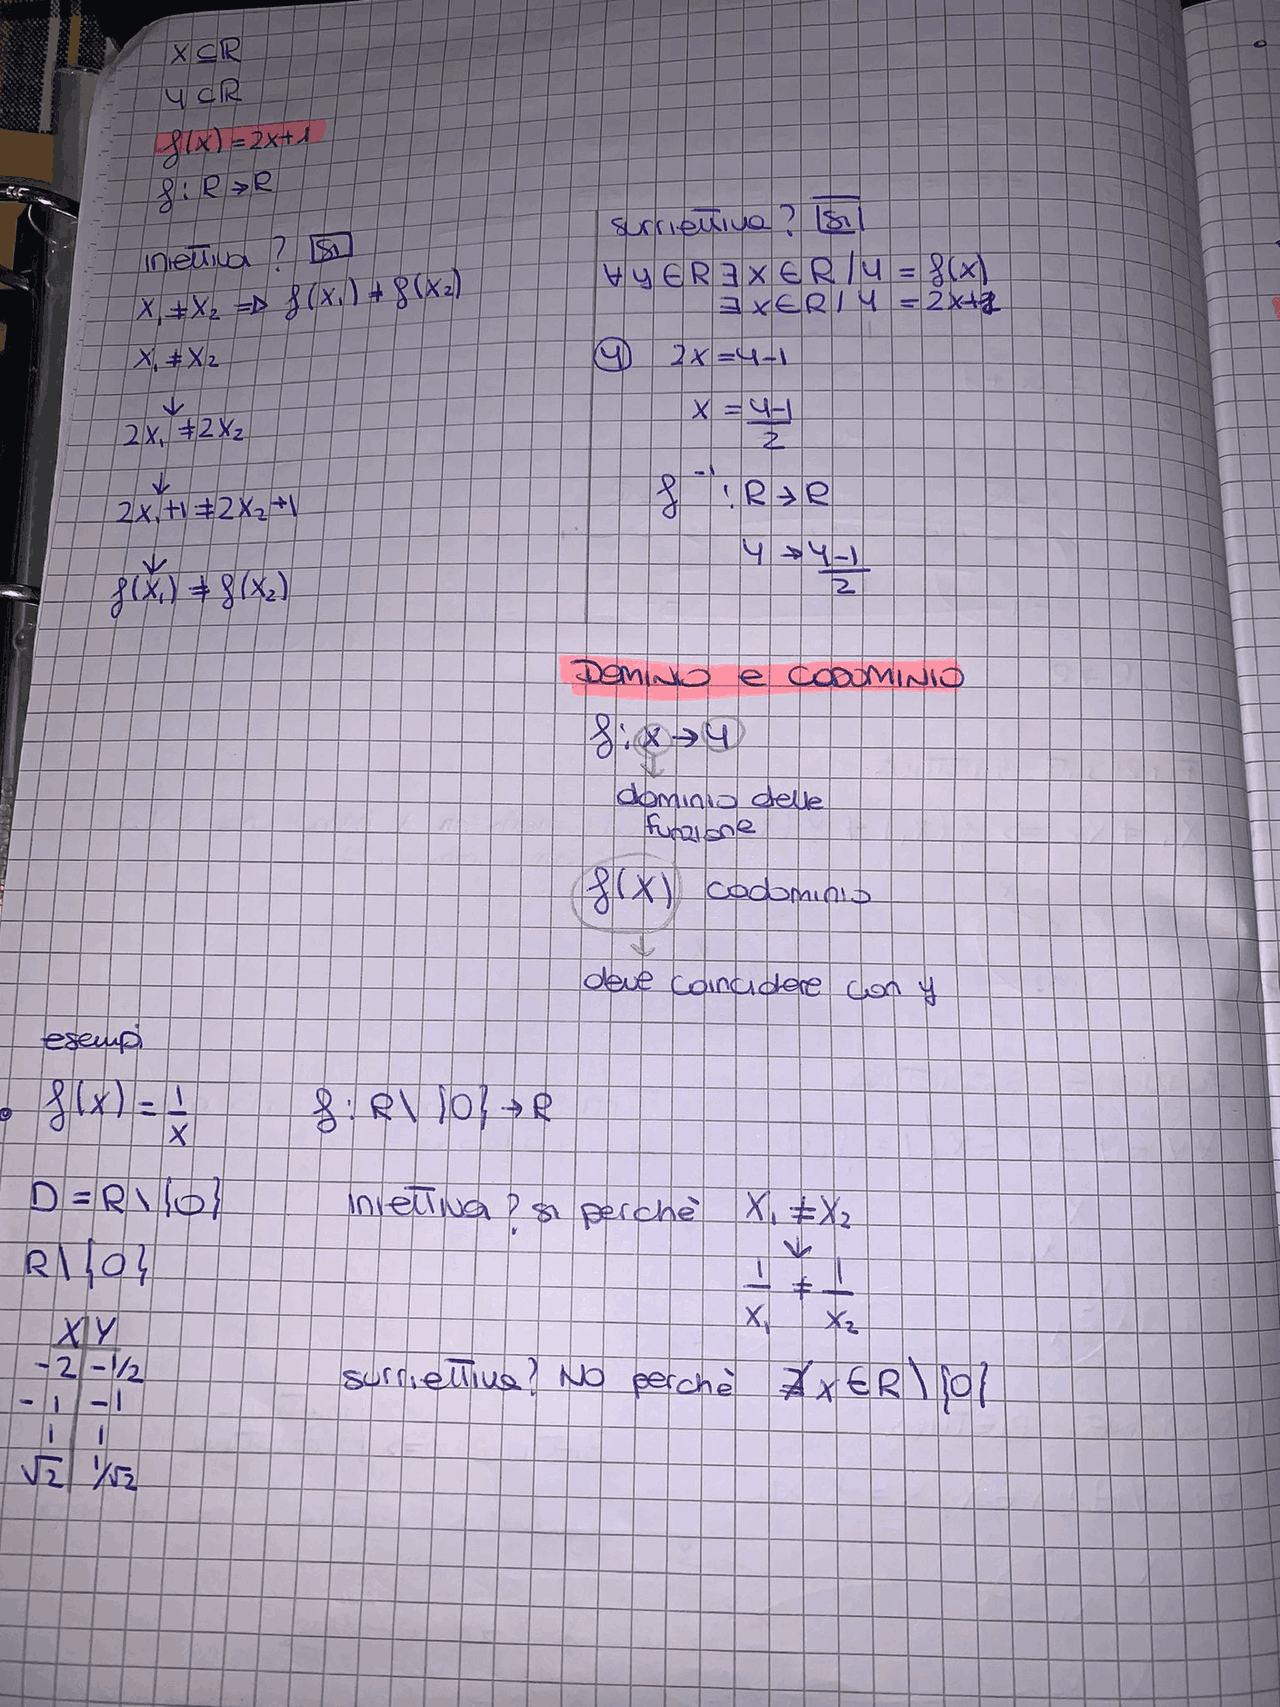 X ⊆ R
Y ⊂ R
f(x) = 2x+1
f: R → R
iniettiva? SI
x₁ ≠ x₂ => f(x₁) ≠ f(x₂)
x₁ ≠ x₂
↓
2x₁ ≠ 2x₂
↓
2x₁+1 ≠ 2x₂+1
↓
f(x₁) ≠ f(x₂)
surriettiva? SI
∀ y ∈ R ∃ x ∈ R / y = f(x)
∃ x ∈ R / y = 2x+1
y 2x = y-1
x = y-1/2
f⁻¹: R → R
y → y-1/2
DOMINO e CODOMINIO
f: x → y
↓
dominio delle
funzione
f(X) codominio
↓
deve coincidere con y
esempi
• f(x) = 1/x f: R \ {0} → R
D = R \ {0} iniettiva? si perchè x₁ ≠ x₂
↓
R \ {0} 1/x₁ ≠ 1/x₂
X Y
-2 -1/2 surriettiva? NO perchè ∄ x ∈ R \ {0}
-1 -1
1 1
√2 1/√2